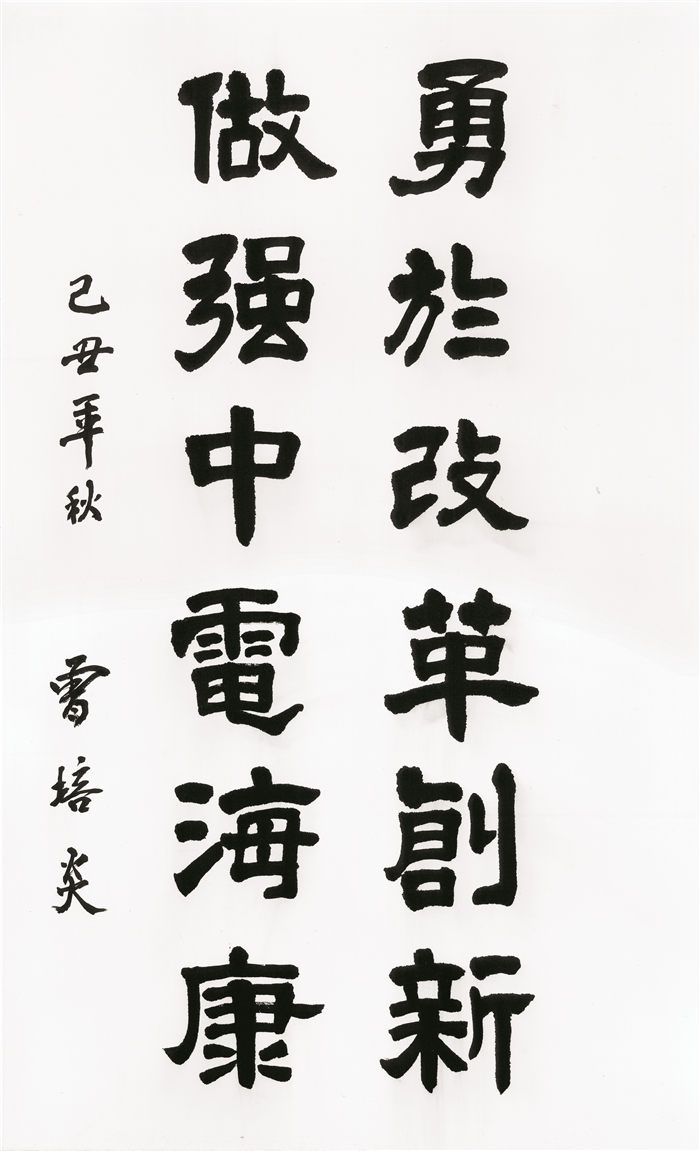 勇於改革創新
做强中電海康
己丑年秋 曾培炎